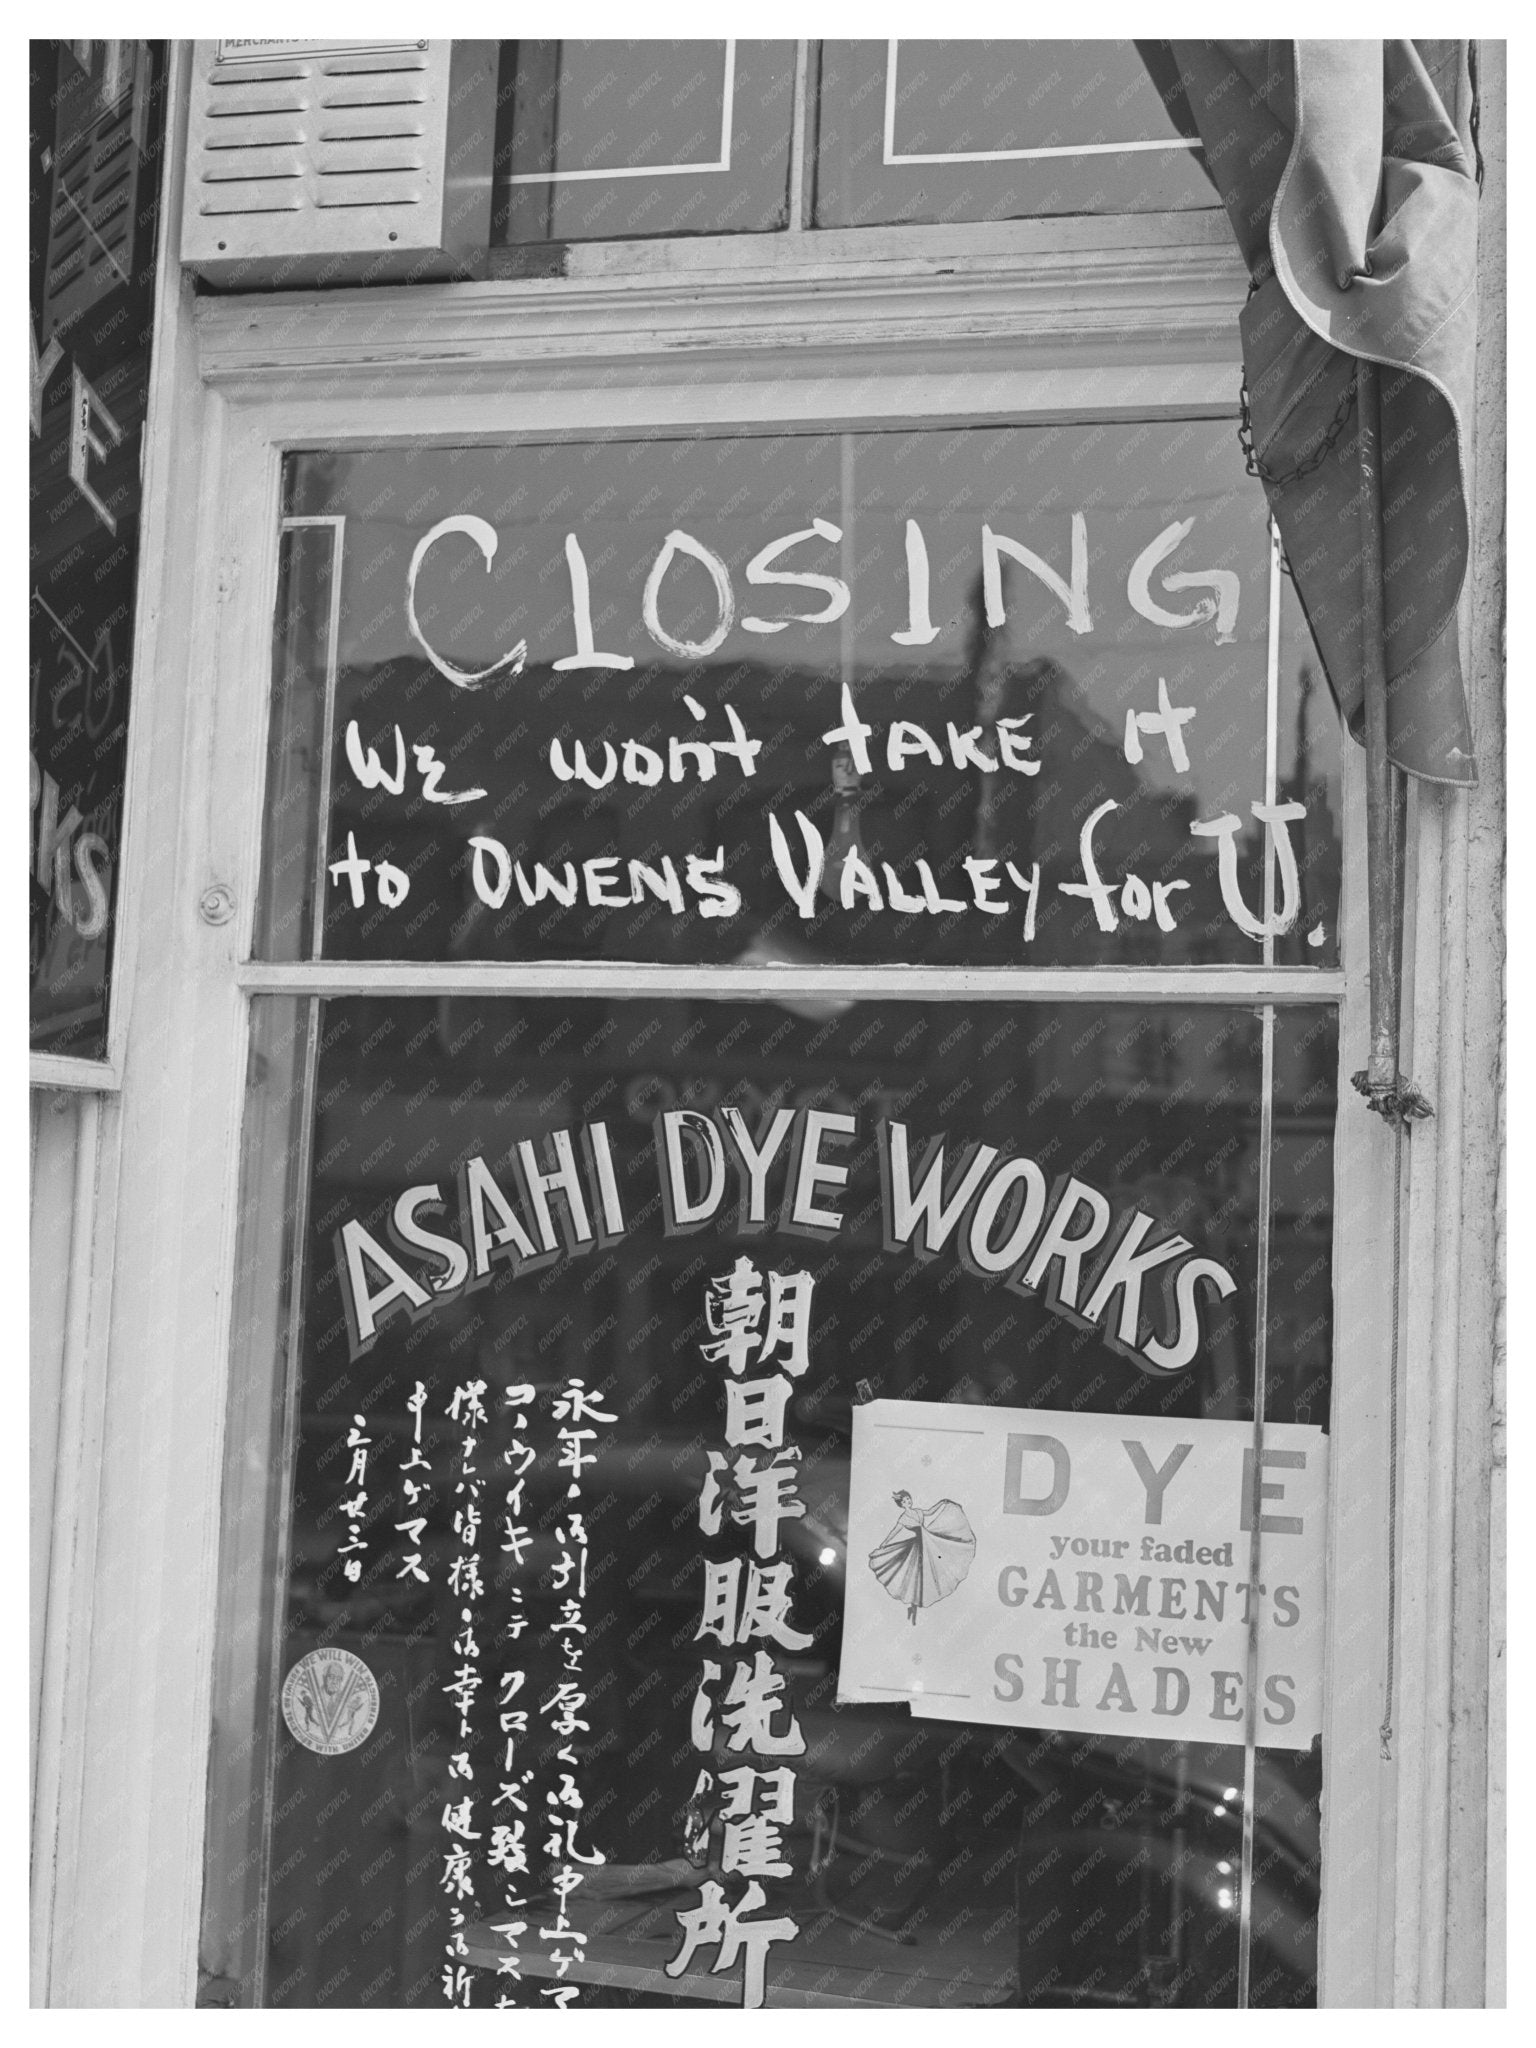 CLOSING
WE won't TAKE it
to OWENS VALLEY for U.
ASAHI DYE WORKS
朝日洋服洗濯所
DYE
your faded
GARMENTS
the New
SHADES
永年御引立を厚く御礼申上ゲマ
コノウイキミテクローズ致シマス
様ナレバ皆様御幸ト御健康ヲ御祈
申上ゲマス
三月廿三日
WE WILL WIN